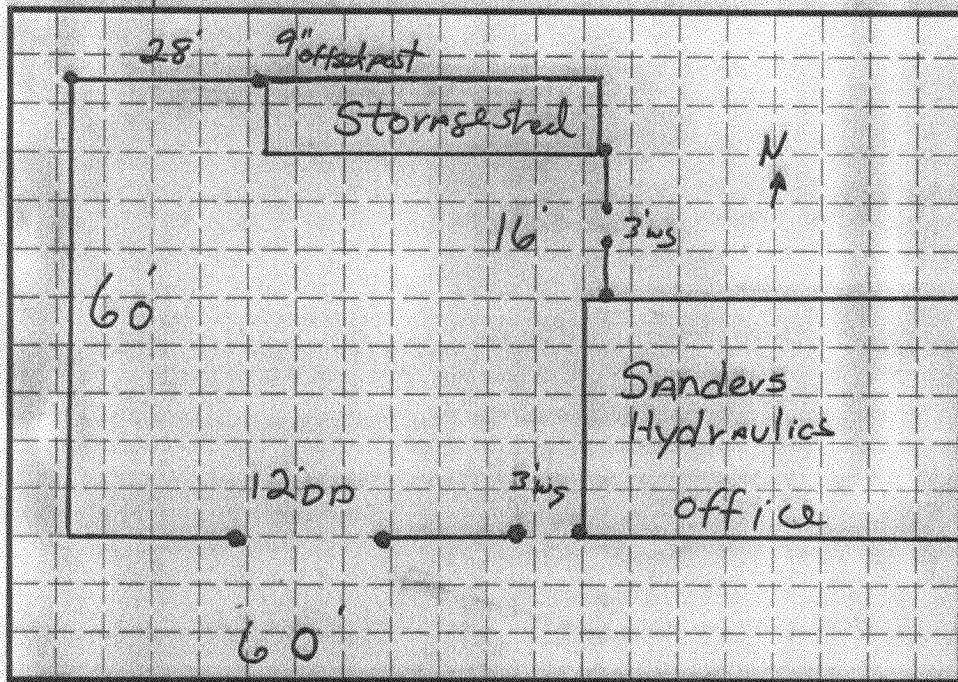 28'
9" offset post
Storage shed
N
16'
3'ws
60'
Sanders
Hydraulics
office
12'DD
3'ws
60'